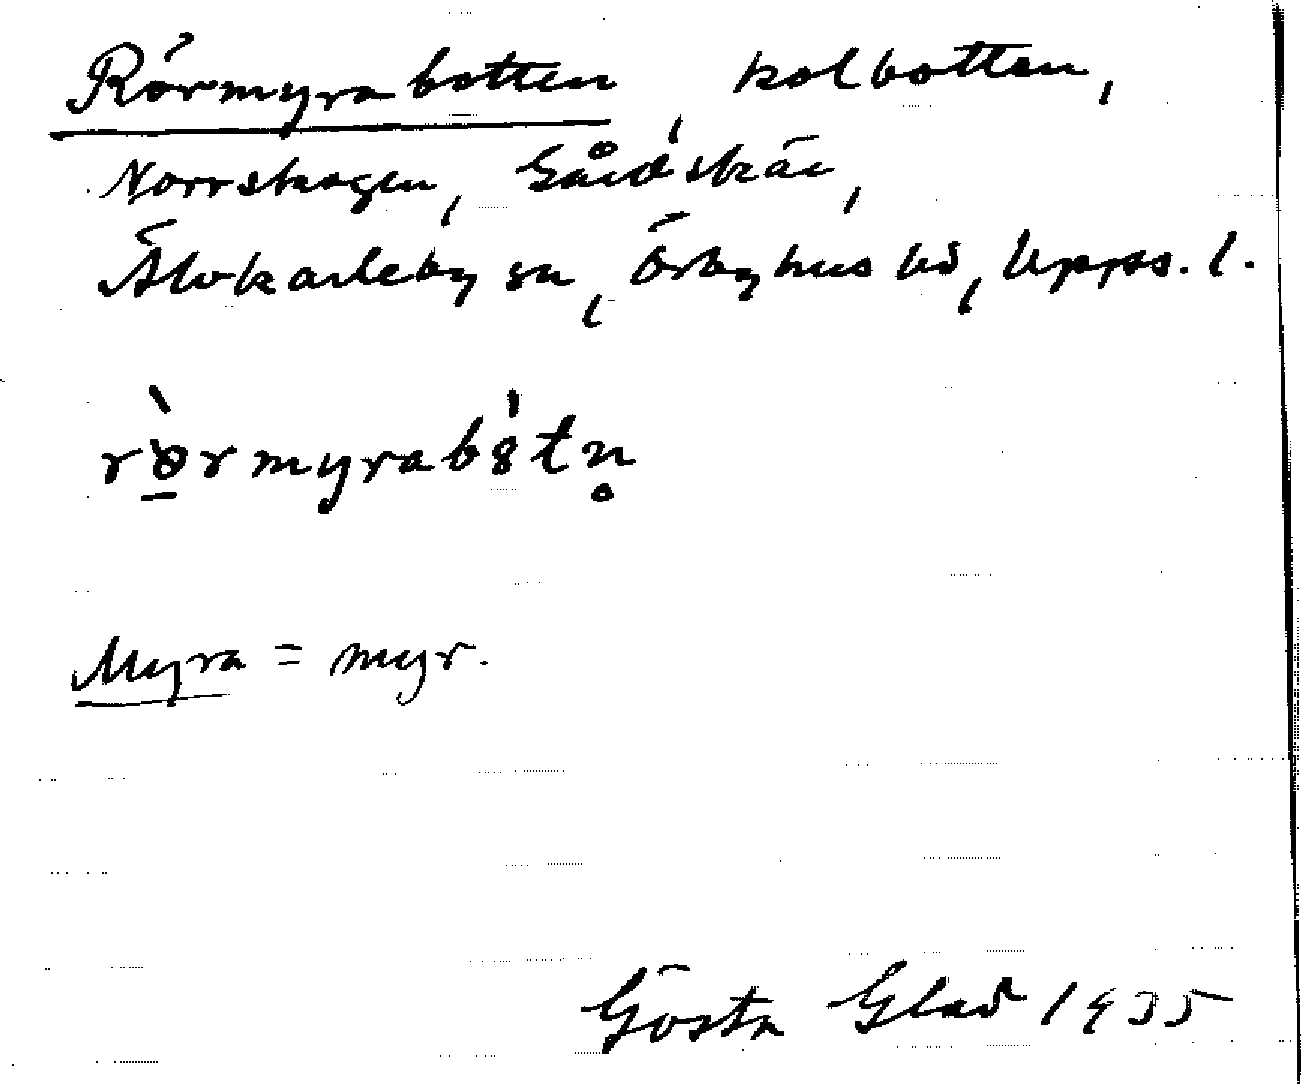 Rörmyrabotten, kolbotten,
Norrskogen, Gårdskär,
Älvkarleby sn, Örbyhus hd, Upps. l.
rö̀rmyrabótn̥
Myra = myr.
Gösta Glad 1935